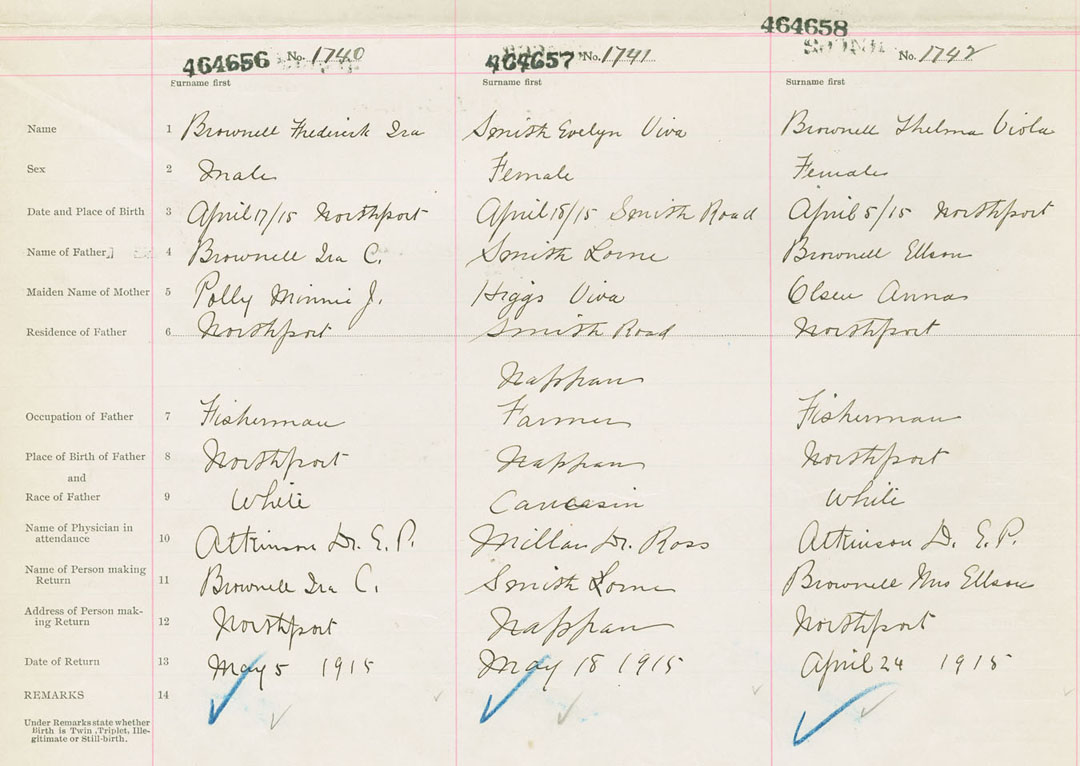 464658
464656 No. 1740 464657 No. 1741 No. 1742
Surname first Surname first Surname first
Name 1 Brownell Frederick Ira Smith Evelyn Viva Brownell Thelma Viola
Sex 2 Male Female Female
Date and Place of Birth 3 April 17/15 Northport April 18/15 Smith Road April 5/15 Northport
Name of Father 4 Brownell Ira C. Smith Lorne Brownell Ellson
Maiden Name of Mother 5 Polly Minnie J. Higgs Viva Olsen Anna
Residence of Father 6 Northport Smith Road Northport
Nappan
Occupation of Father 7 Fisherman Farmer Fisherman
Place of Birth of Father 8 Northport Nappan Northport
and
Race of Father 9 White Caucasin White
Name of Physician in
attendance 10 Atkinson Dr. E. P. Millar Dr. Ross Atkinson D. E. P.
Name of Person making
Return 11 Brownell Ira C. Smith Lorne Brownell Mrs Ellson
Address of Person mak-
ing Return 12 Northport Nappan Northport
Date of Return 13 May 5 1915 May 18 1915 April 24 1915
REMARKS 14
Under Remarks state whether
Birth is Twin, Triplet, Ille-
gitimate or Still-birth.